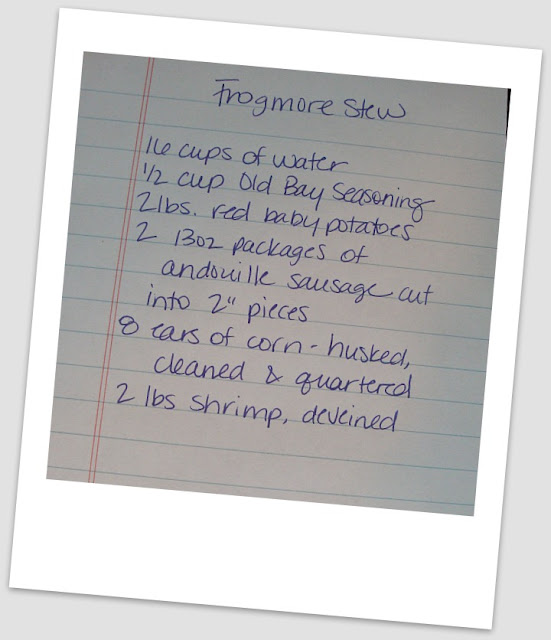 Frogmore Stew
16 cups of water
1/2 cup Old Bay Seasoning
2 lbs. red baby potatoes
2 13oz packages of
andouille sausage cut
into 2" pieces
8 ears of corn - husked,
cleaned & quartered
2 lbs shrimp, deveined